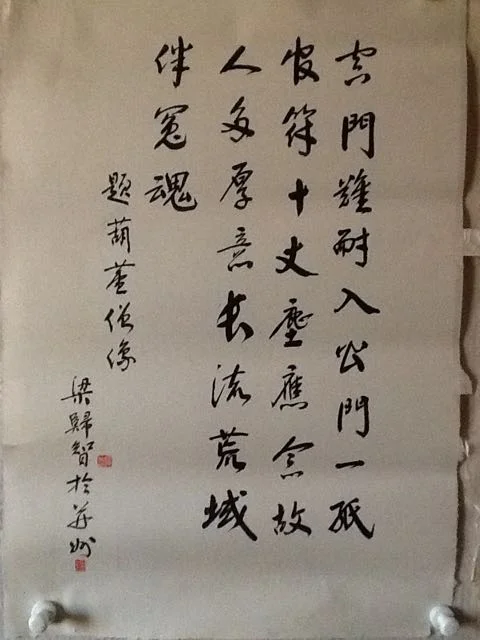 空門難耐入公門一紙
官符十丈塵應念故
人多厚意長流荒域
伴冤魂
題葫蘆僧像
梁歸智於并州